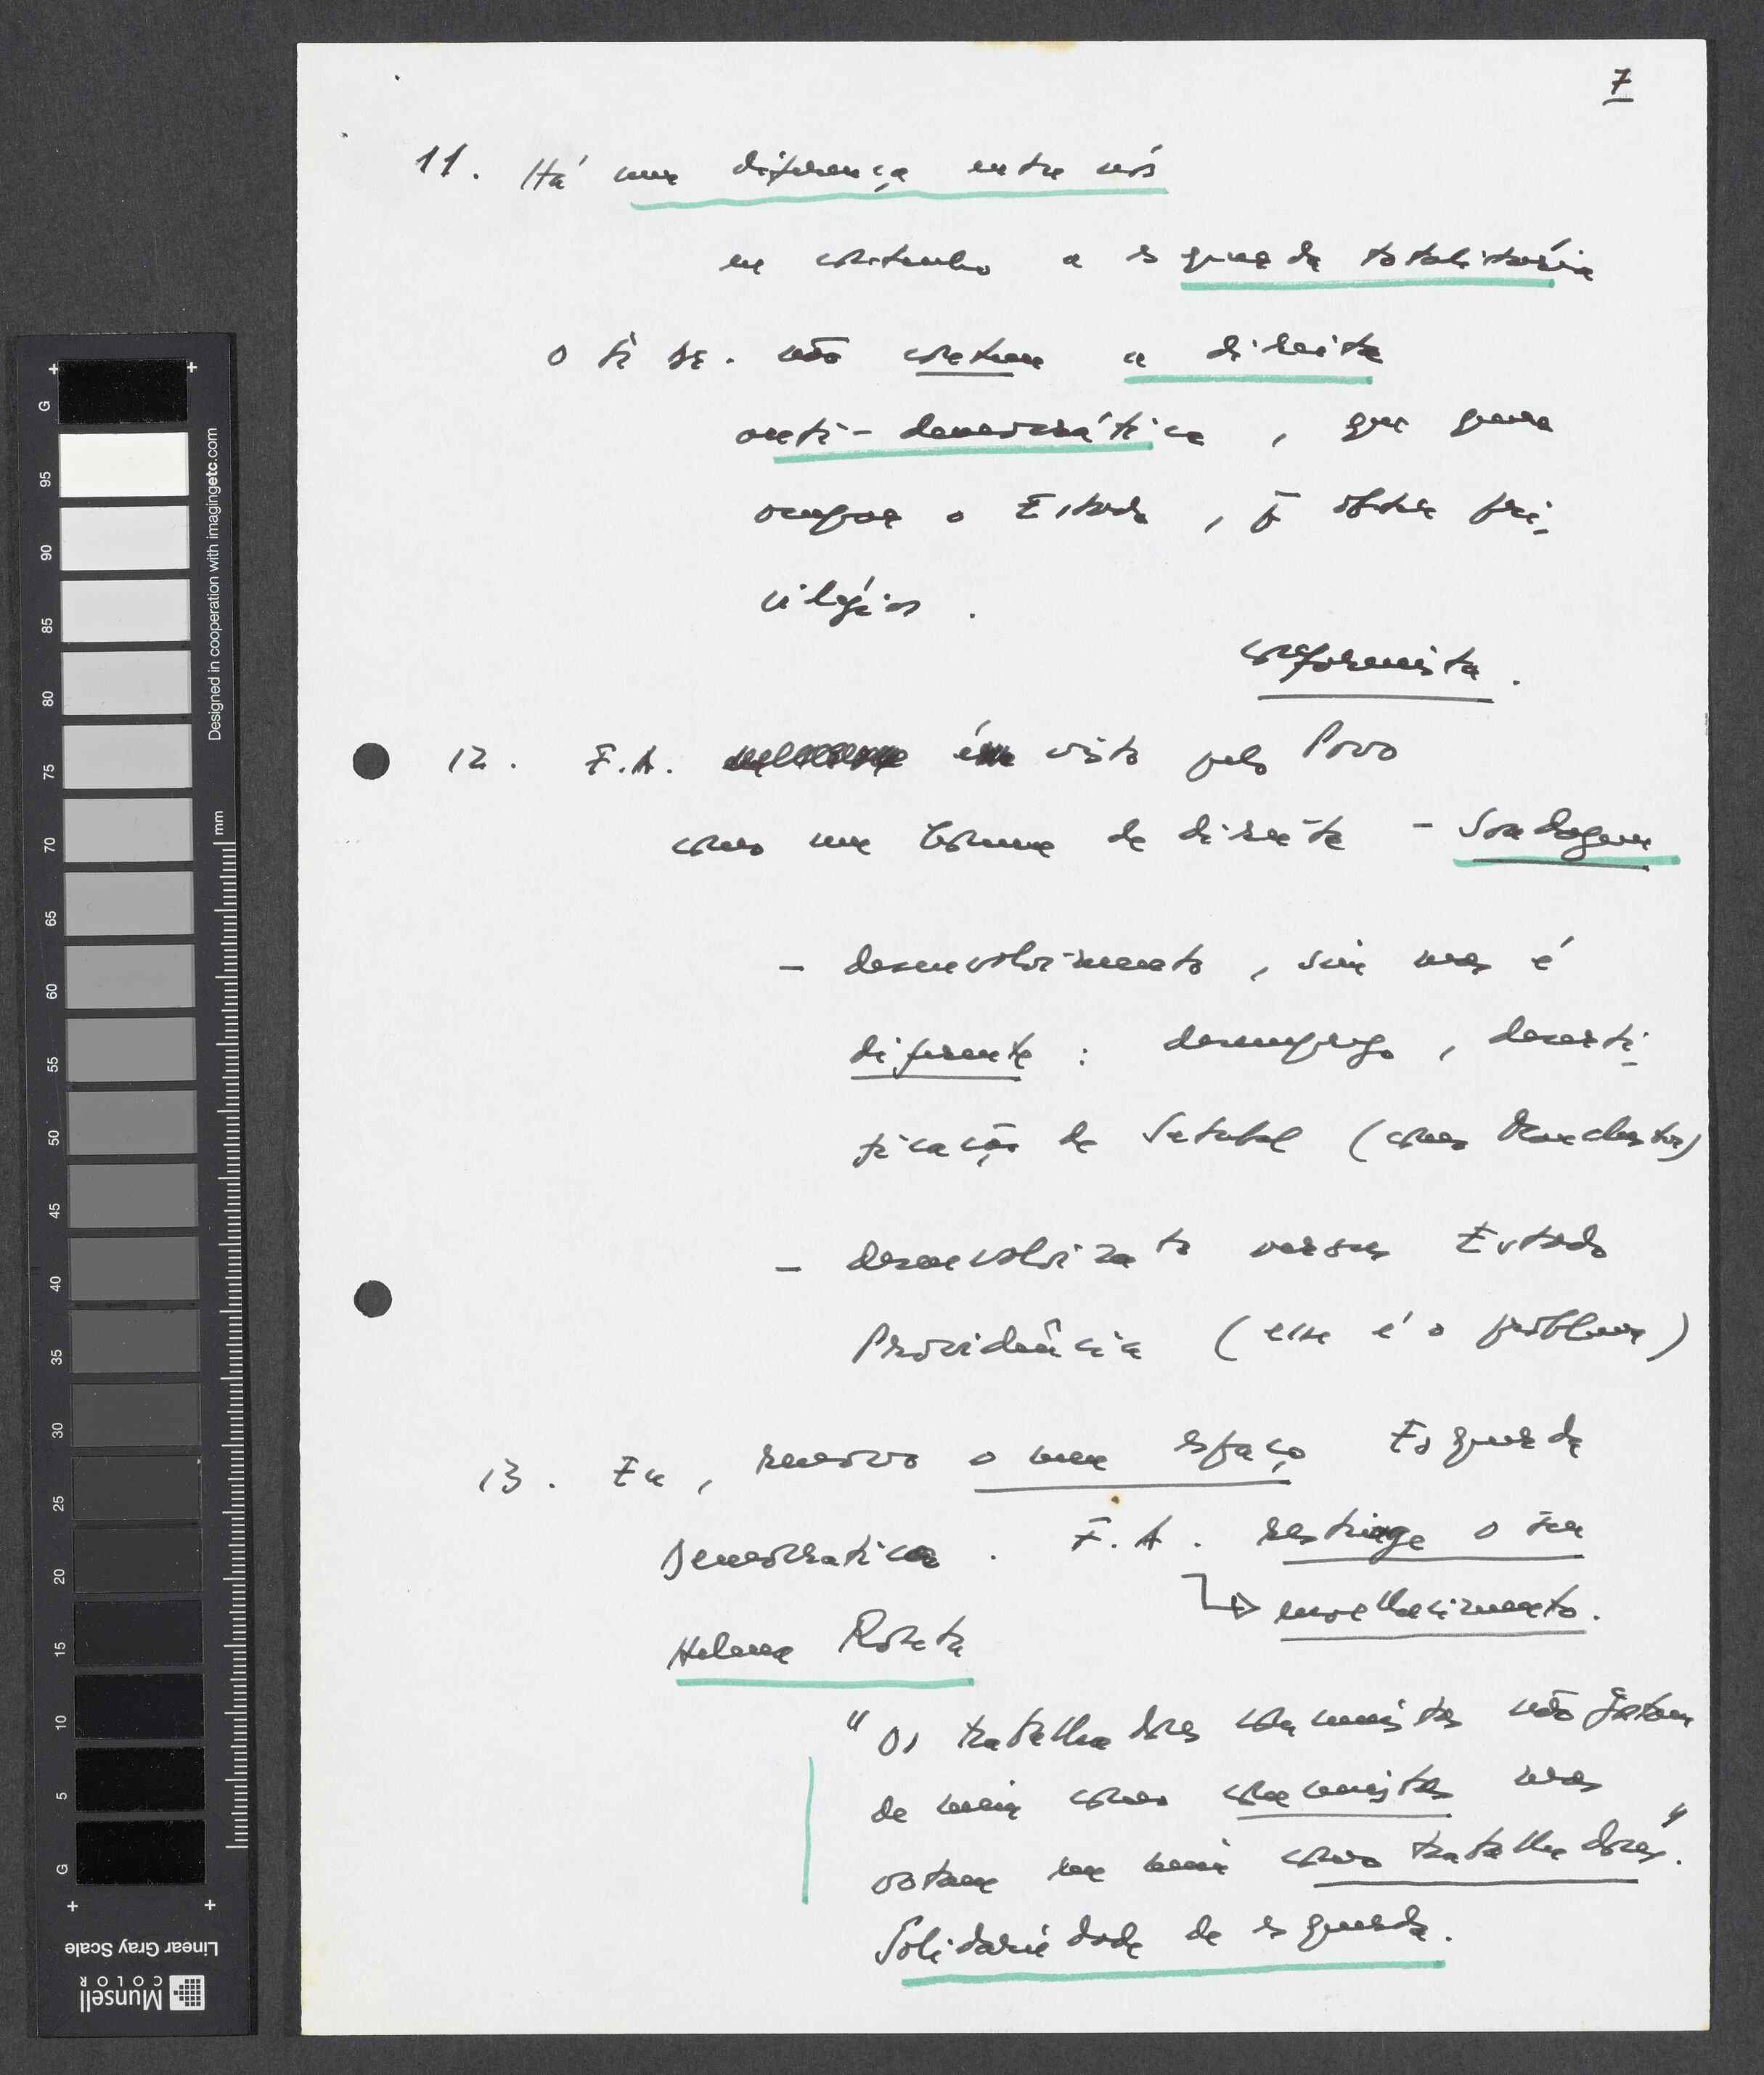 7
11. Há uma diferença entre nós
eu contenho a esquerda totalitária
o Sr. não contem a direita
anti-democrática, que quer
ocupar o Estado, p/ obter pri-
vilégios.
conformista.
12. F.A. é visto pelo Povo
como um homem de direita - Sondagem
- desenvolvimento, sim mas é
diferente: desemprego, deserti-
ficação de Setubal (como Manchester)
- desenvolvimento versus Estado
Providência (esse é o problema)
13. Eu, renovo o meu espaço Esquerda
Democratica. F.A. restringe o seu
envelhecimento.
Helena Roseta
"Os trabalhadores comunistas não gostam
de mim como comunistas mas
votam em mim como trabalhadores".
Solidariedade de esquerda.
Designed in cooperation with imagingetc.com
mm
G 95 90 85 80 75 70 65 60 55 50 45 40 35 30 25 20 15 10 5 G
Linear Gray Scale
Munsell
COLOR